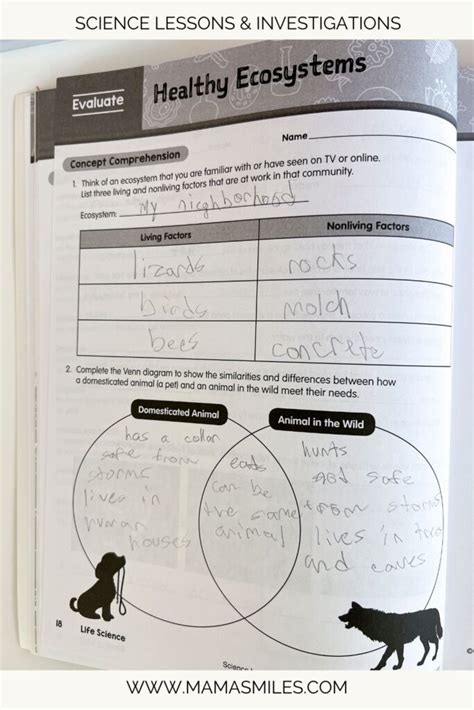 SCIENCE LESSONS & INVESTIGATIONS
Evaluate
Healthy Ecosystems
Name
Concept Comprehension
1. Think of an ecosystem that you are familiar with or have seen on TV or online.
List three living and nonliving factors that are at work in that community.
Ecosystem: My nieghborhood
Living Factors Nonliving Factors
lizards rocks
birds molch
bees concrete
2. Complete the Venn diagram to show the similarities and differences between how
a domesticated animal (a pet) and an animal in the wild meet their needs.
Domesticated Animal
has a collar
safe from
storms
lives in
human
houses
eats
can be
the same
animal
Animal in the Wild
hunts
not safe
from storms
lives in trees
and caves
18 Life Science
WWW.MAMASMILES.COM